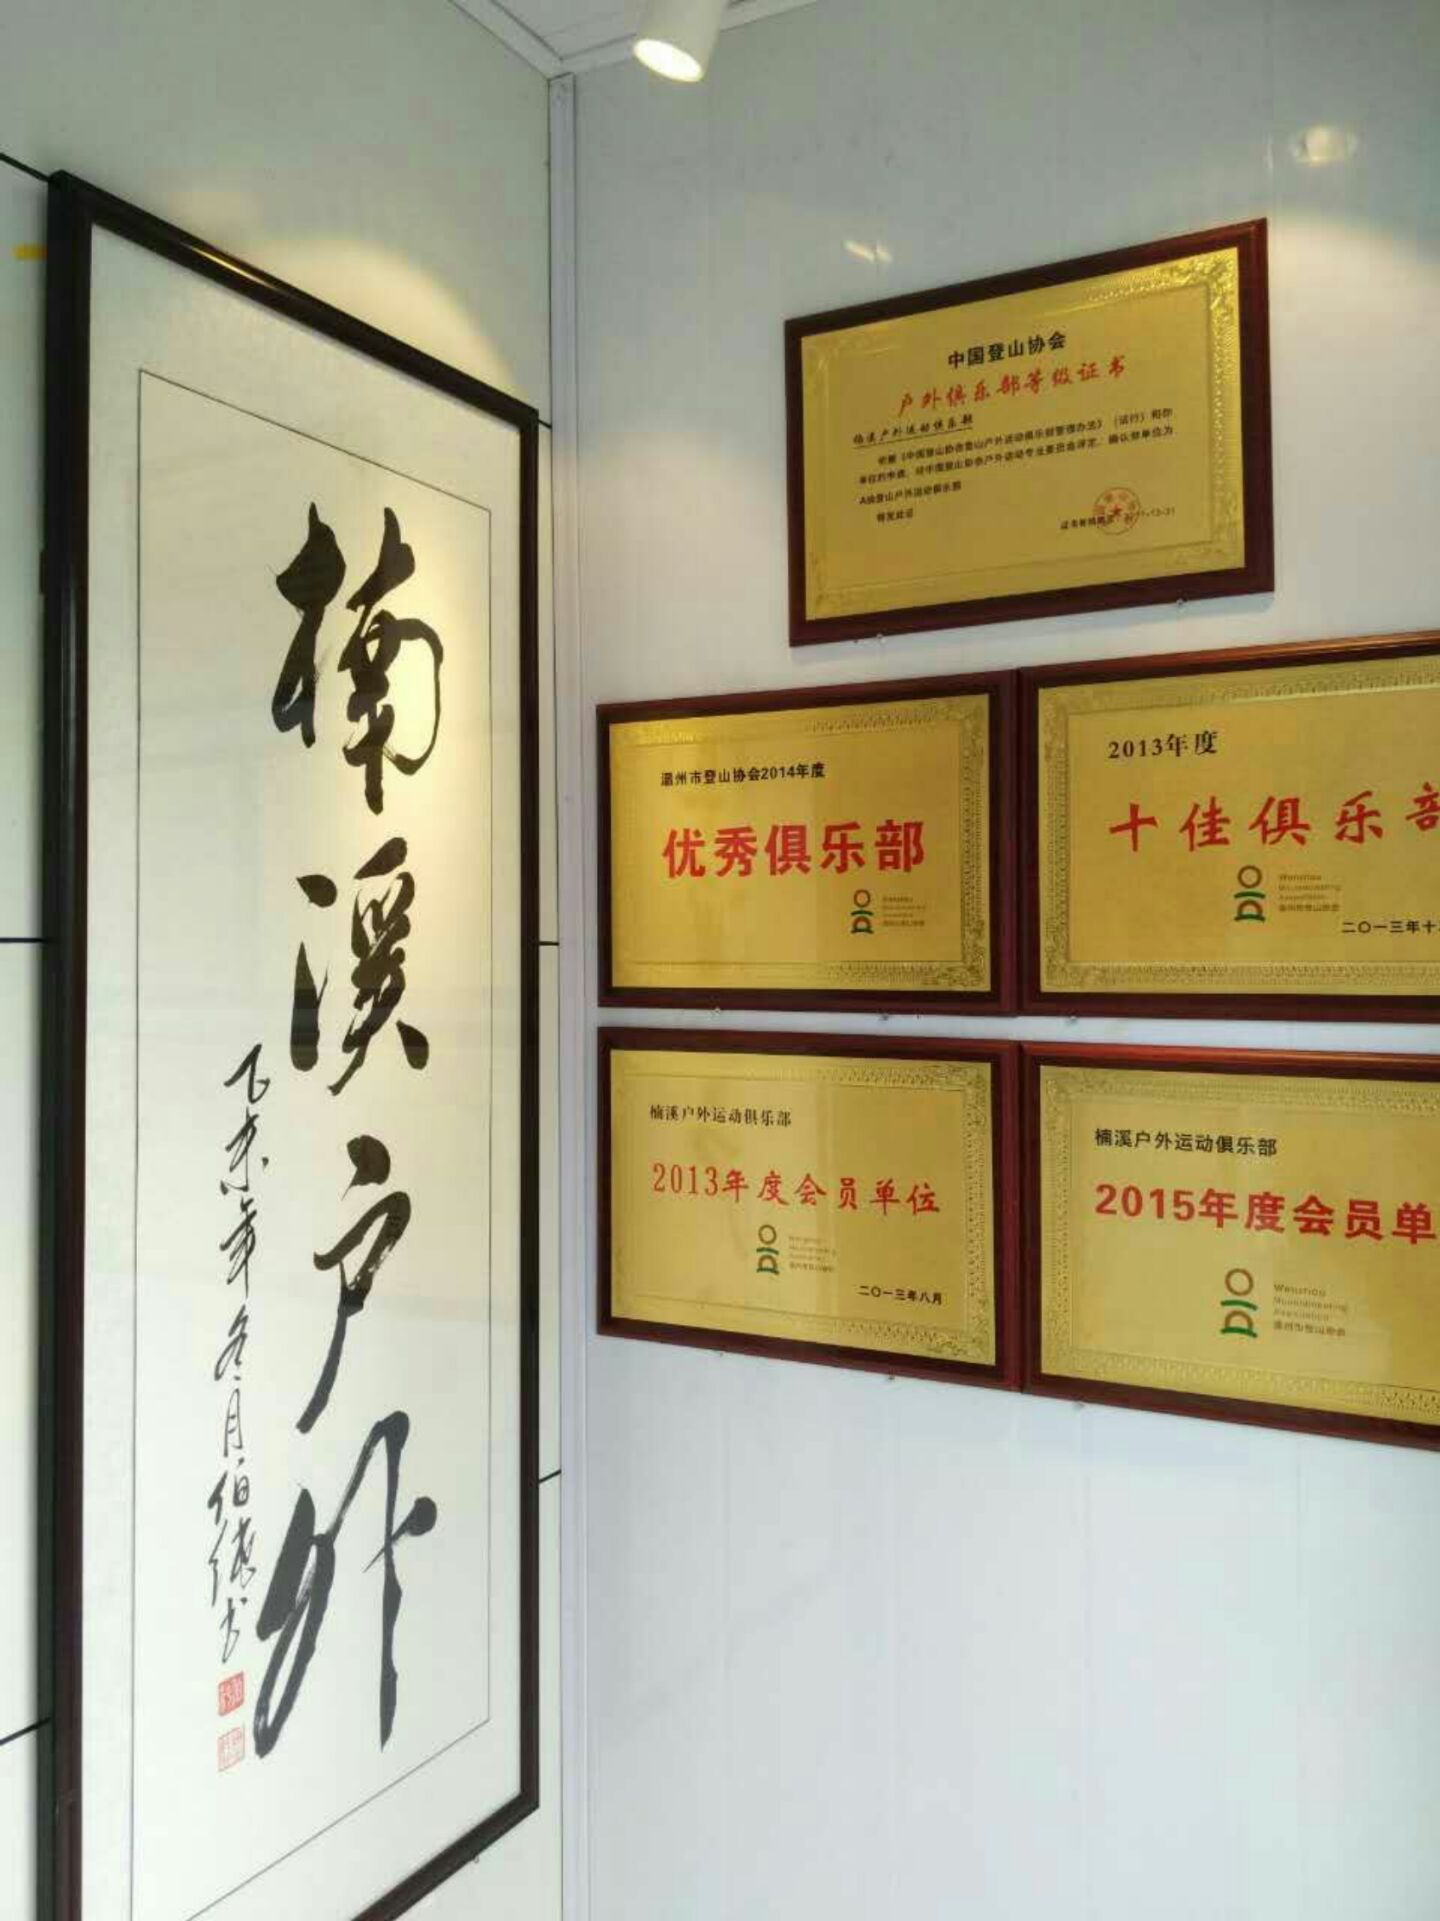 楠溪户外
乙未年冬月伯德书
中国登山协会
户外俱乐部等级证书
楠溪户外运动俱乐部
依据《中国登山协会登山户外运动俱乐部管理办法》（试行）和你
单位的申请，经中国登山协会户外运动专业委员会评定，确认你单位为
A级登山户外运动俱乐部
特发此证
温州市登山协会2014年度
优秀俱乐部
2013年度
十佳俱乐部
Wenzhou
Mountaineering
Association
温州市登山协会
二〇一三年十
楠溪户外运动俱乐部
2013年度会员单位
温州市登山协会
二〇一三年八月
楠溪户外运动俱乐部
2015年度会员单
Wenzhou
Mountaineering
Association
温州市登山协会